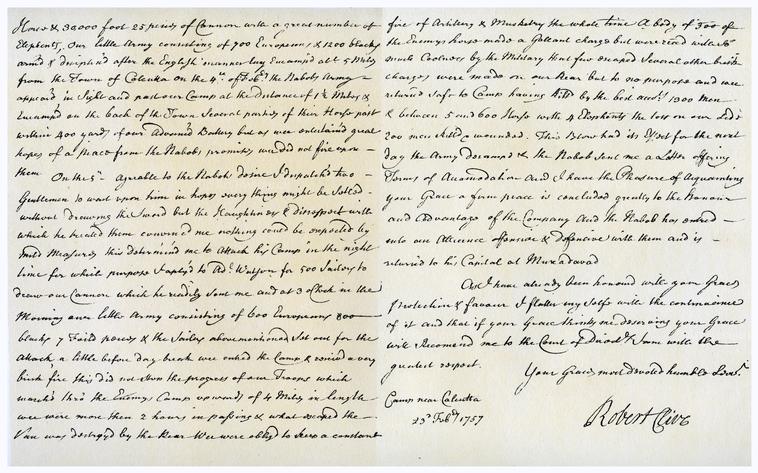 Horse & 30000 foot 25 peices of Cannon with a great number of
Elephents, Our little Army consisting of 700 Europeens & 1200 blacks
arm'd & disciplin'd after the English manner lay Encamp'd at 5 Miles
from the Town of Calcutta on the 4th of Feb'y the Nabobs Army
appear'd in Sight and past our Camp at the distance of 1½ Miles &
Encamp'd on the back of the Town Several parties of their Horse past
within 400 yards of our Advanced Battery but as wee entertained great
hopes of a Peace from the Nabobs promises wee did not fire upon
them
On the 5th agreable to the Nabobs desire I dispatched two
Gentlemen to wait upon him in hopes every thing might be Setled
without drawing the Sword but the Haughtiness & disrespect with
which he treated them convinced me nothing could be expected by
mild Measures this determined me to Attack his Camp in the night
time for which purpose I aply'd to Ad: Watson for 500 Sailors to
draw our Cannon which he readily sent me and at 3 oClock in the
Morning our little Army consisting of 600 Europeens 800
blacks 7 Feild peices & the Sailors abovementioned Set out for the
Attack, a little before day break wee entred the Camp & receiv'd a very
brisk fire this did not stop the progress of our Troops which
march'd thro the Enemys Camp upwards of 4 Miles in length
wee were more then 2 hours in passing & what escaped the
Van was destroy'd by the Rear Wee were oblig'd to keep a constant
fire of Artillery & Musketry the whole time A body of 300 of
the Enemys horse made a Gallant charge but were received with So
much Coolness by the Military that few escaped Several other brisk
charges were made on our Rear but to no purpose and wee
returned Safe to Camp having kill'd by the best acco'ts 1300 Men
& between 5 and 600 Horse with 4 Elephents the loss on our Side
200 men kill'd & wounded. This Blow had its Effect for the next
day the Army decamped & the Nabob sent me a Letter offering
Terms of Accomodation and I have the Pleasure of Aquainting
your Grace a firm peace is concluded greatly to the Honour
and Advantage of the Company and the Nabob has entred
into an Allience offensive & defensive with them and is
returned to his Capital at Muxadavad
As I have already been honour'd with your Graces
Protection & favour I flatter my Self with the continuance
of it and that if your Grace thinks me deserving your Grace
will Recomend me to the Court of Directors I am with the
greatest respect.
Your Graces most devoted humble Serv't
Camp near Calcutta
23d Feb'y 1757
Robert Clive